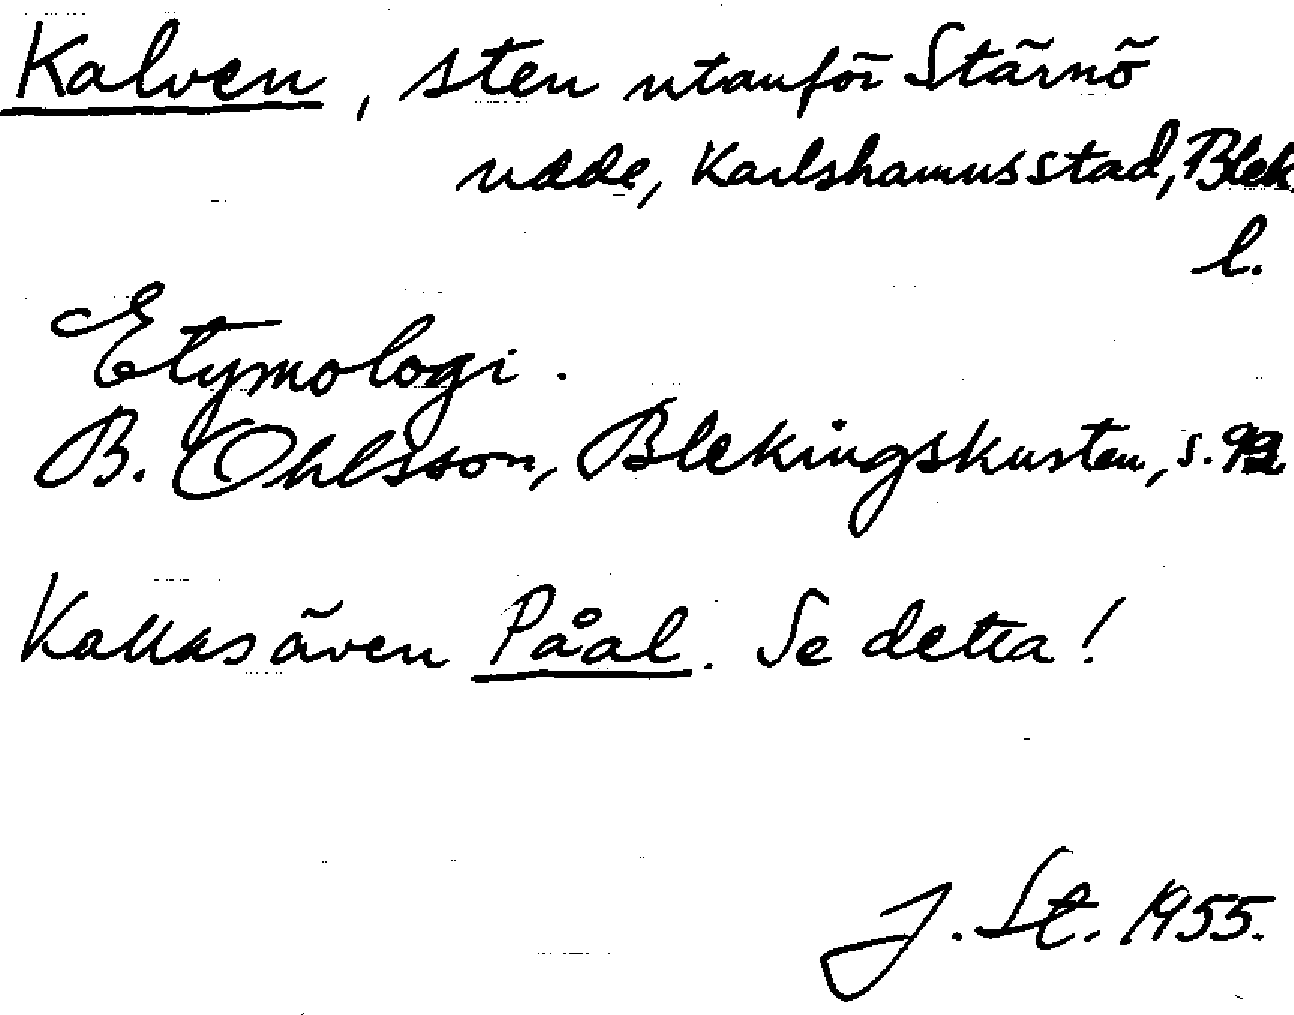 Kalven, sten utanför Stärnö
udde, Karlshamns stad, Blek.
l.
Etymologi.
B. Ohlsson, Blekingskusten, s.
Kallas även Påal. Se detta!
J. St. 1955.